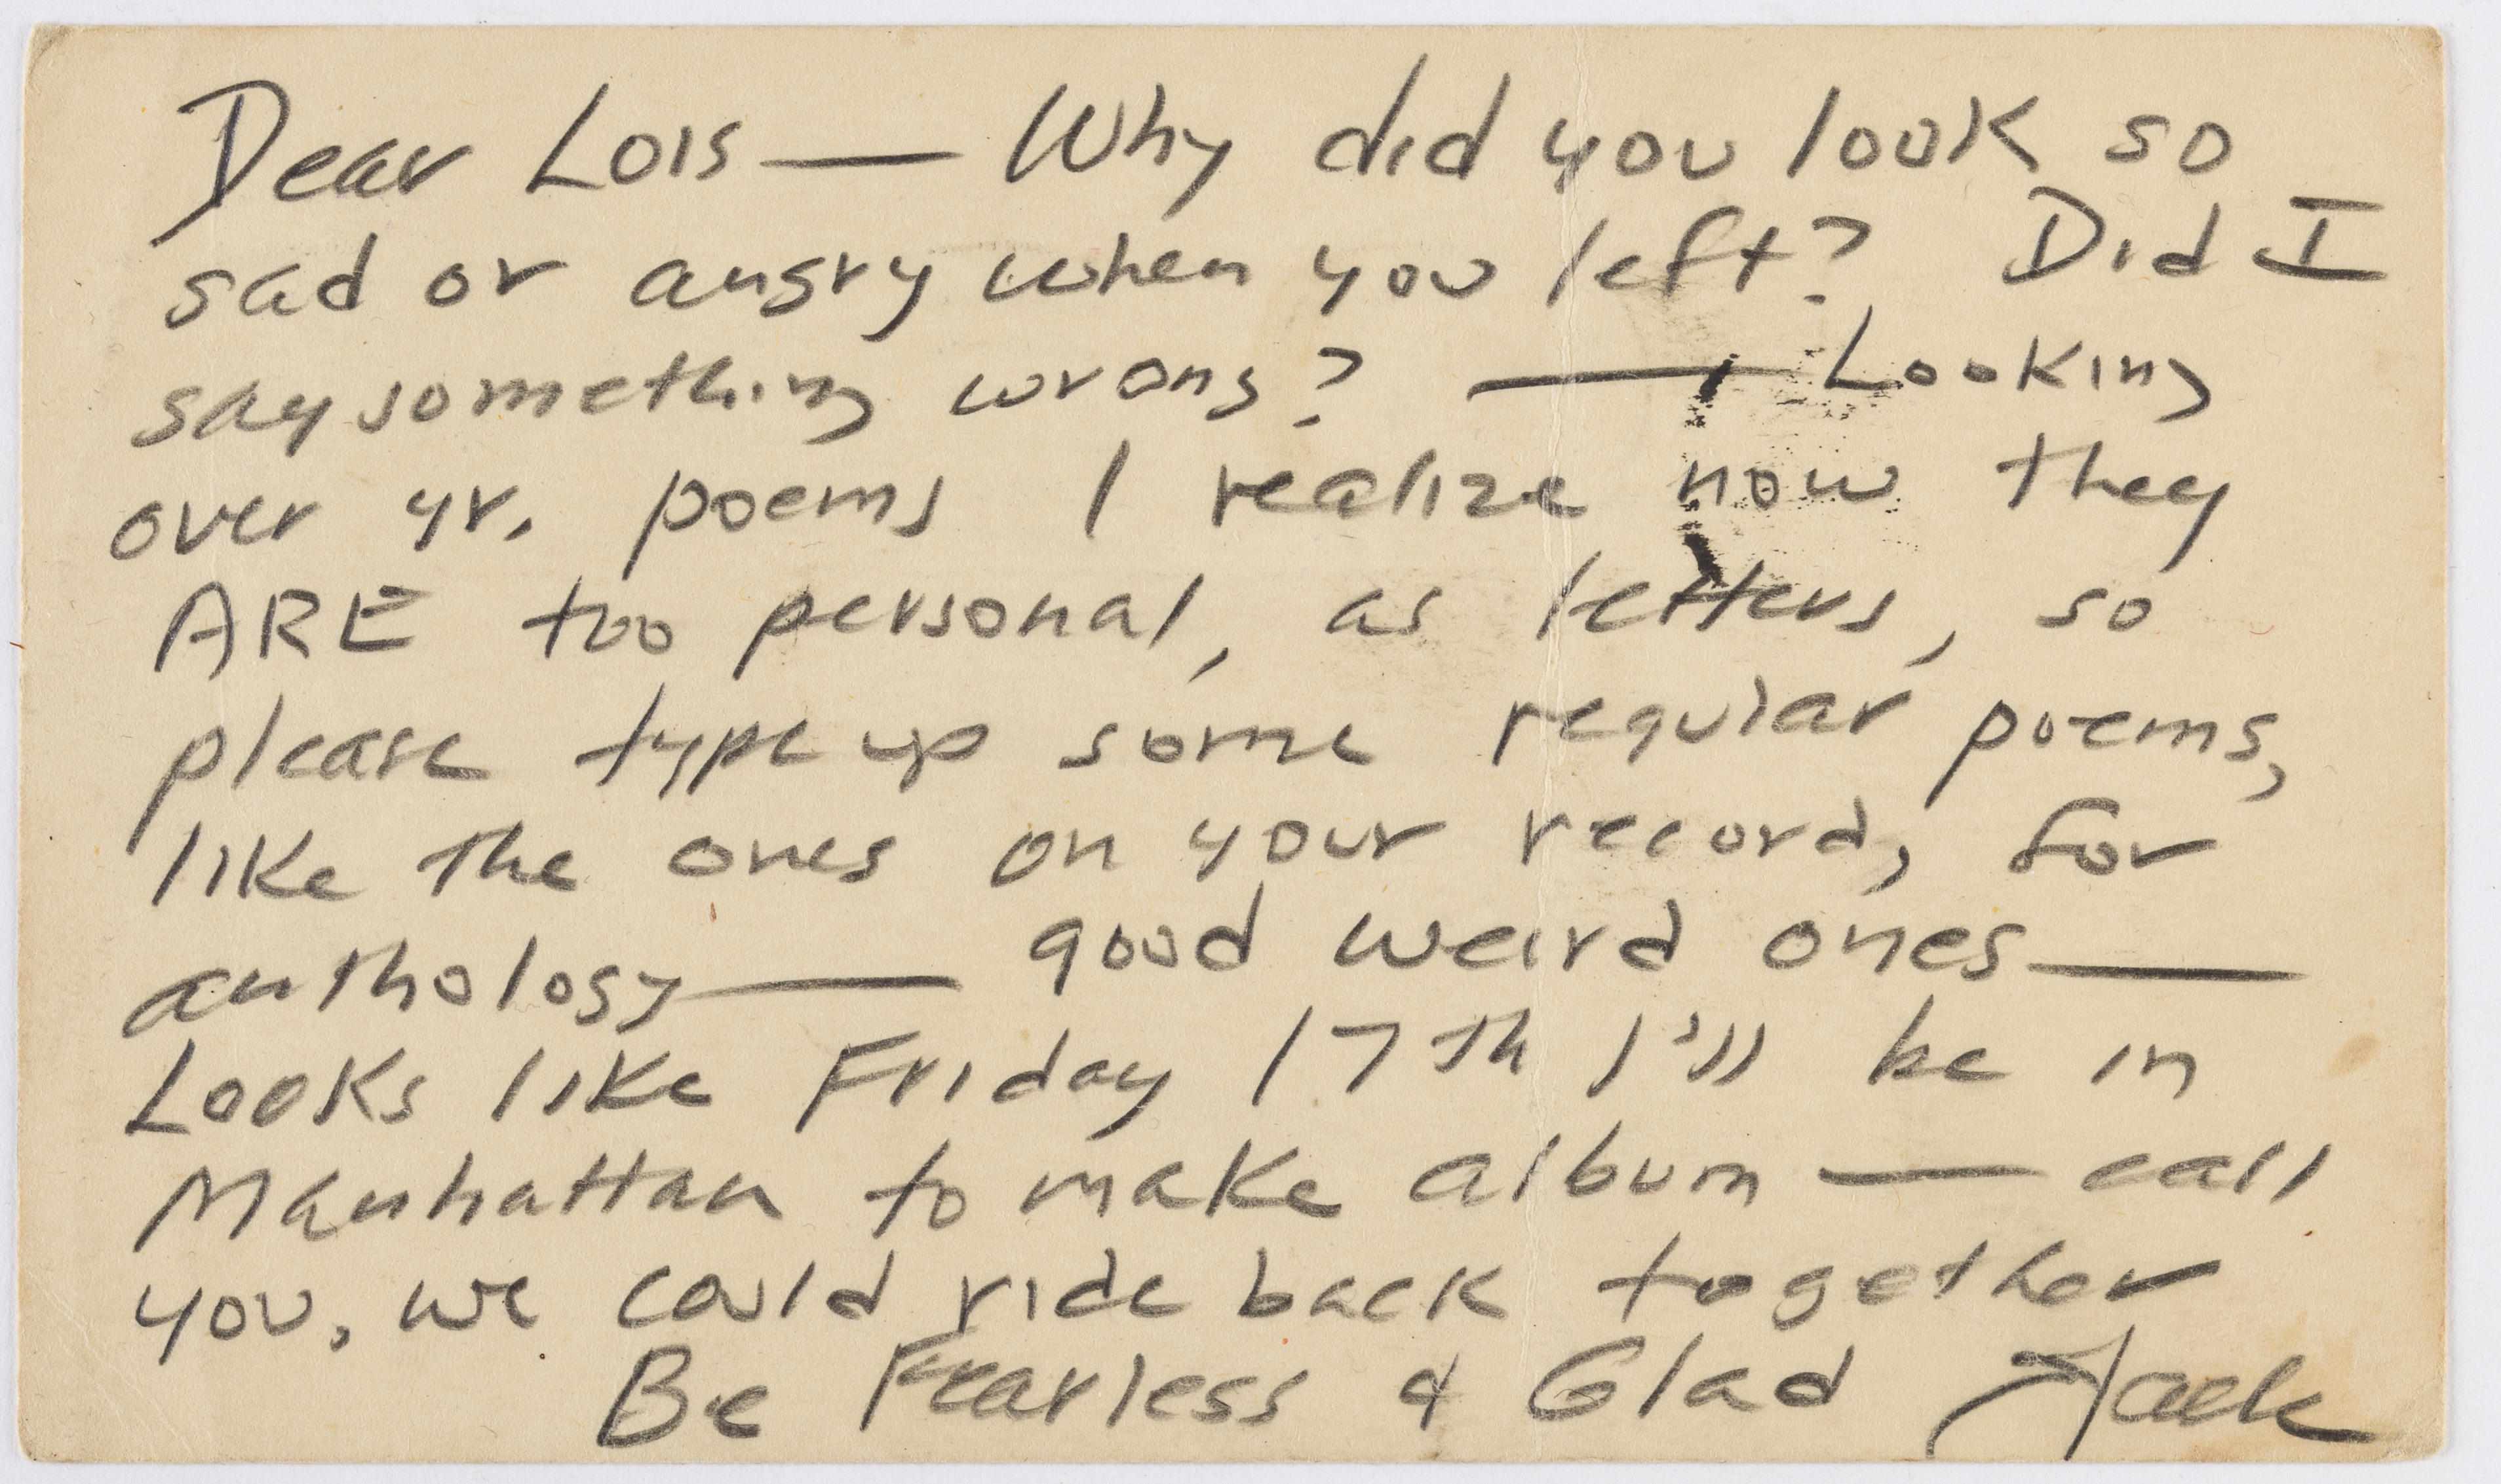 Dear Lois — Why did you look so
sad or angry when you left? Did I
say something wrong? — Looking
over yr. poems I realize now they
ARE too personal, as letters, so
please type up some regular poems,
like the ones on your record, for
anthology — good weird ones —
Looks like Friday 17th I'll be in
Manhattan to make album — call
you, we could ride back together
Be Fearless & Glad Jack